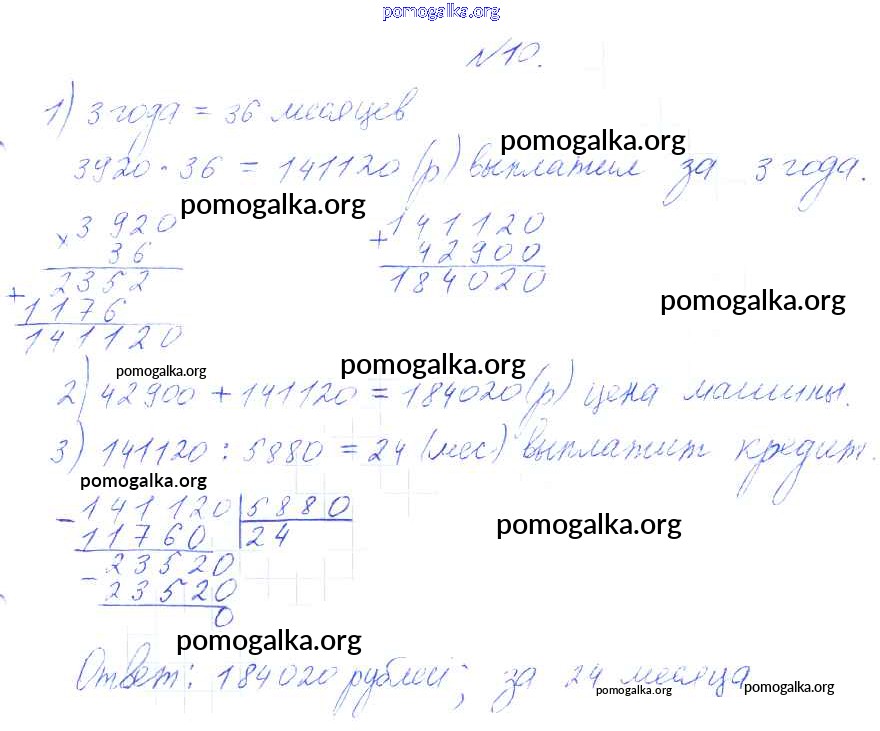 pomogalka.org
№10.
1) 3 года = 36 месяцев
pomogalka.org
3920 · 36 = 141120 (р) выплатил за 3 года.
pomogalka.org
× 3920
36
+ 2352
1176
141120
+ 141120
42900
184020
pomogalka.org
pomogalka.org
pomogalka.org
2) 42900 + 141120 = 184020 (р) цена машины.
3) 141120 : 5880 = 24 (мес) выплатит кредит.
pomogalka.org
- 141120 | 5880
11760 | 24
- 23520
23520
0
pomogalka.org
pomogalka.org
Ответ: 184020 рублей; за 24 месяца
pomogalka.org
pomogalka.org